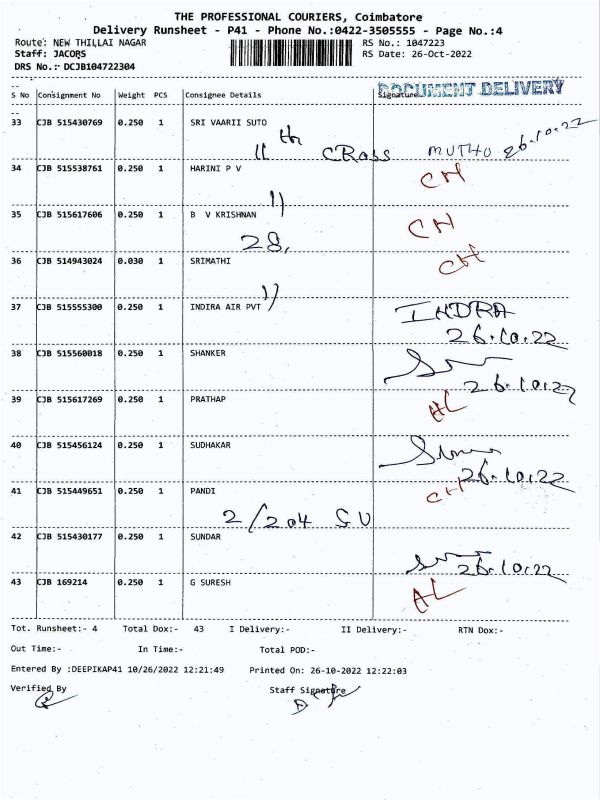 THE PROFESSIONAL COURIERS, Coimbatore
Delivery Runsheet - P41 - Phone No.:0422-3505555 - Page No.:4
Route: NEW THILLAI NAGAR RS No.: 1047223
Staff: JACOBS RS Date: 26-Oct-2022
DRS No.:- DCJB104722304
DOCUMENT DELIVERY
S No Consignment No Weight PCS Consignee Details Signature
33 CJB 515430769 0.250 1 SRI VAARII SUTO
11 th CROSS MUTHU 26.10.22
34 CJB 515538761 0.250 1 HARINI P V CH
11
35 CJB 515617606 0.250 1 B V KRISHNAN CH
28,
36 CJB 514943024 0.030 1 SRIMATHI CH
11
37 CJB 515555300 0.250 1 INDIRA AIR PVT INDRA
26.10.22
38 CJB 515560018 0.250 1 SHANKER
26.10.22
39 CJB 515617269 0.250 1 PRATHAP AL
40 CJB 515456124 0.250 1 SUDHAKAR
26.10.22
41 CJB 515449651 0.250 1 PANDI CH
2/204 GU
42 CJB 515430177 0.250 1 SUNDAR
26.10.22
43 CJB 169214 0.250 1 G SURESH AL
Tot. Runsheet:- 4 Total Dox:- 43 I Delivery:- II Delivery:- RTN Dox:-
Out Time:- In Time:- Total POD:-
Entered By :DEEPIKAP41 10/26/2022 12:21:49 Printed On: 26-10-2022 12:22:03
Verified By Staff Signature